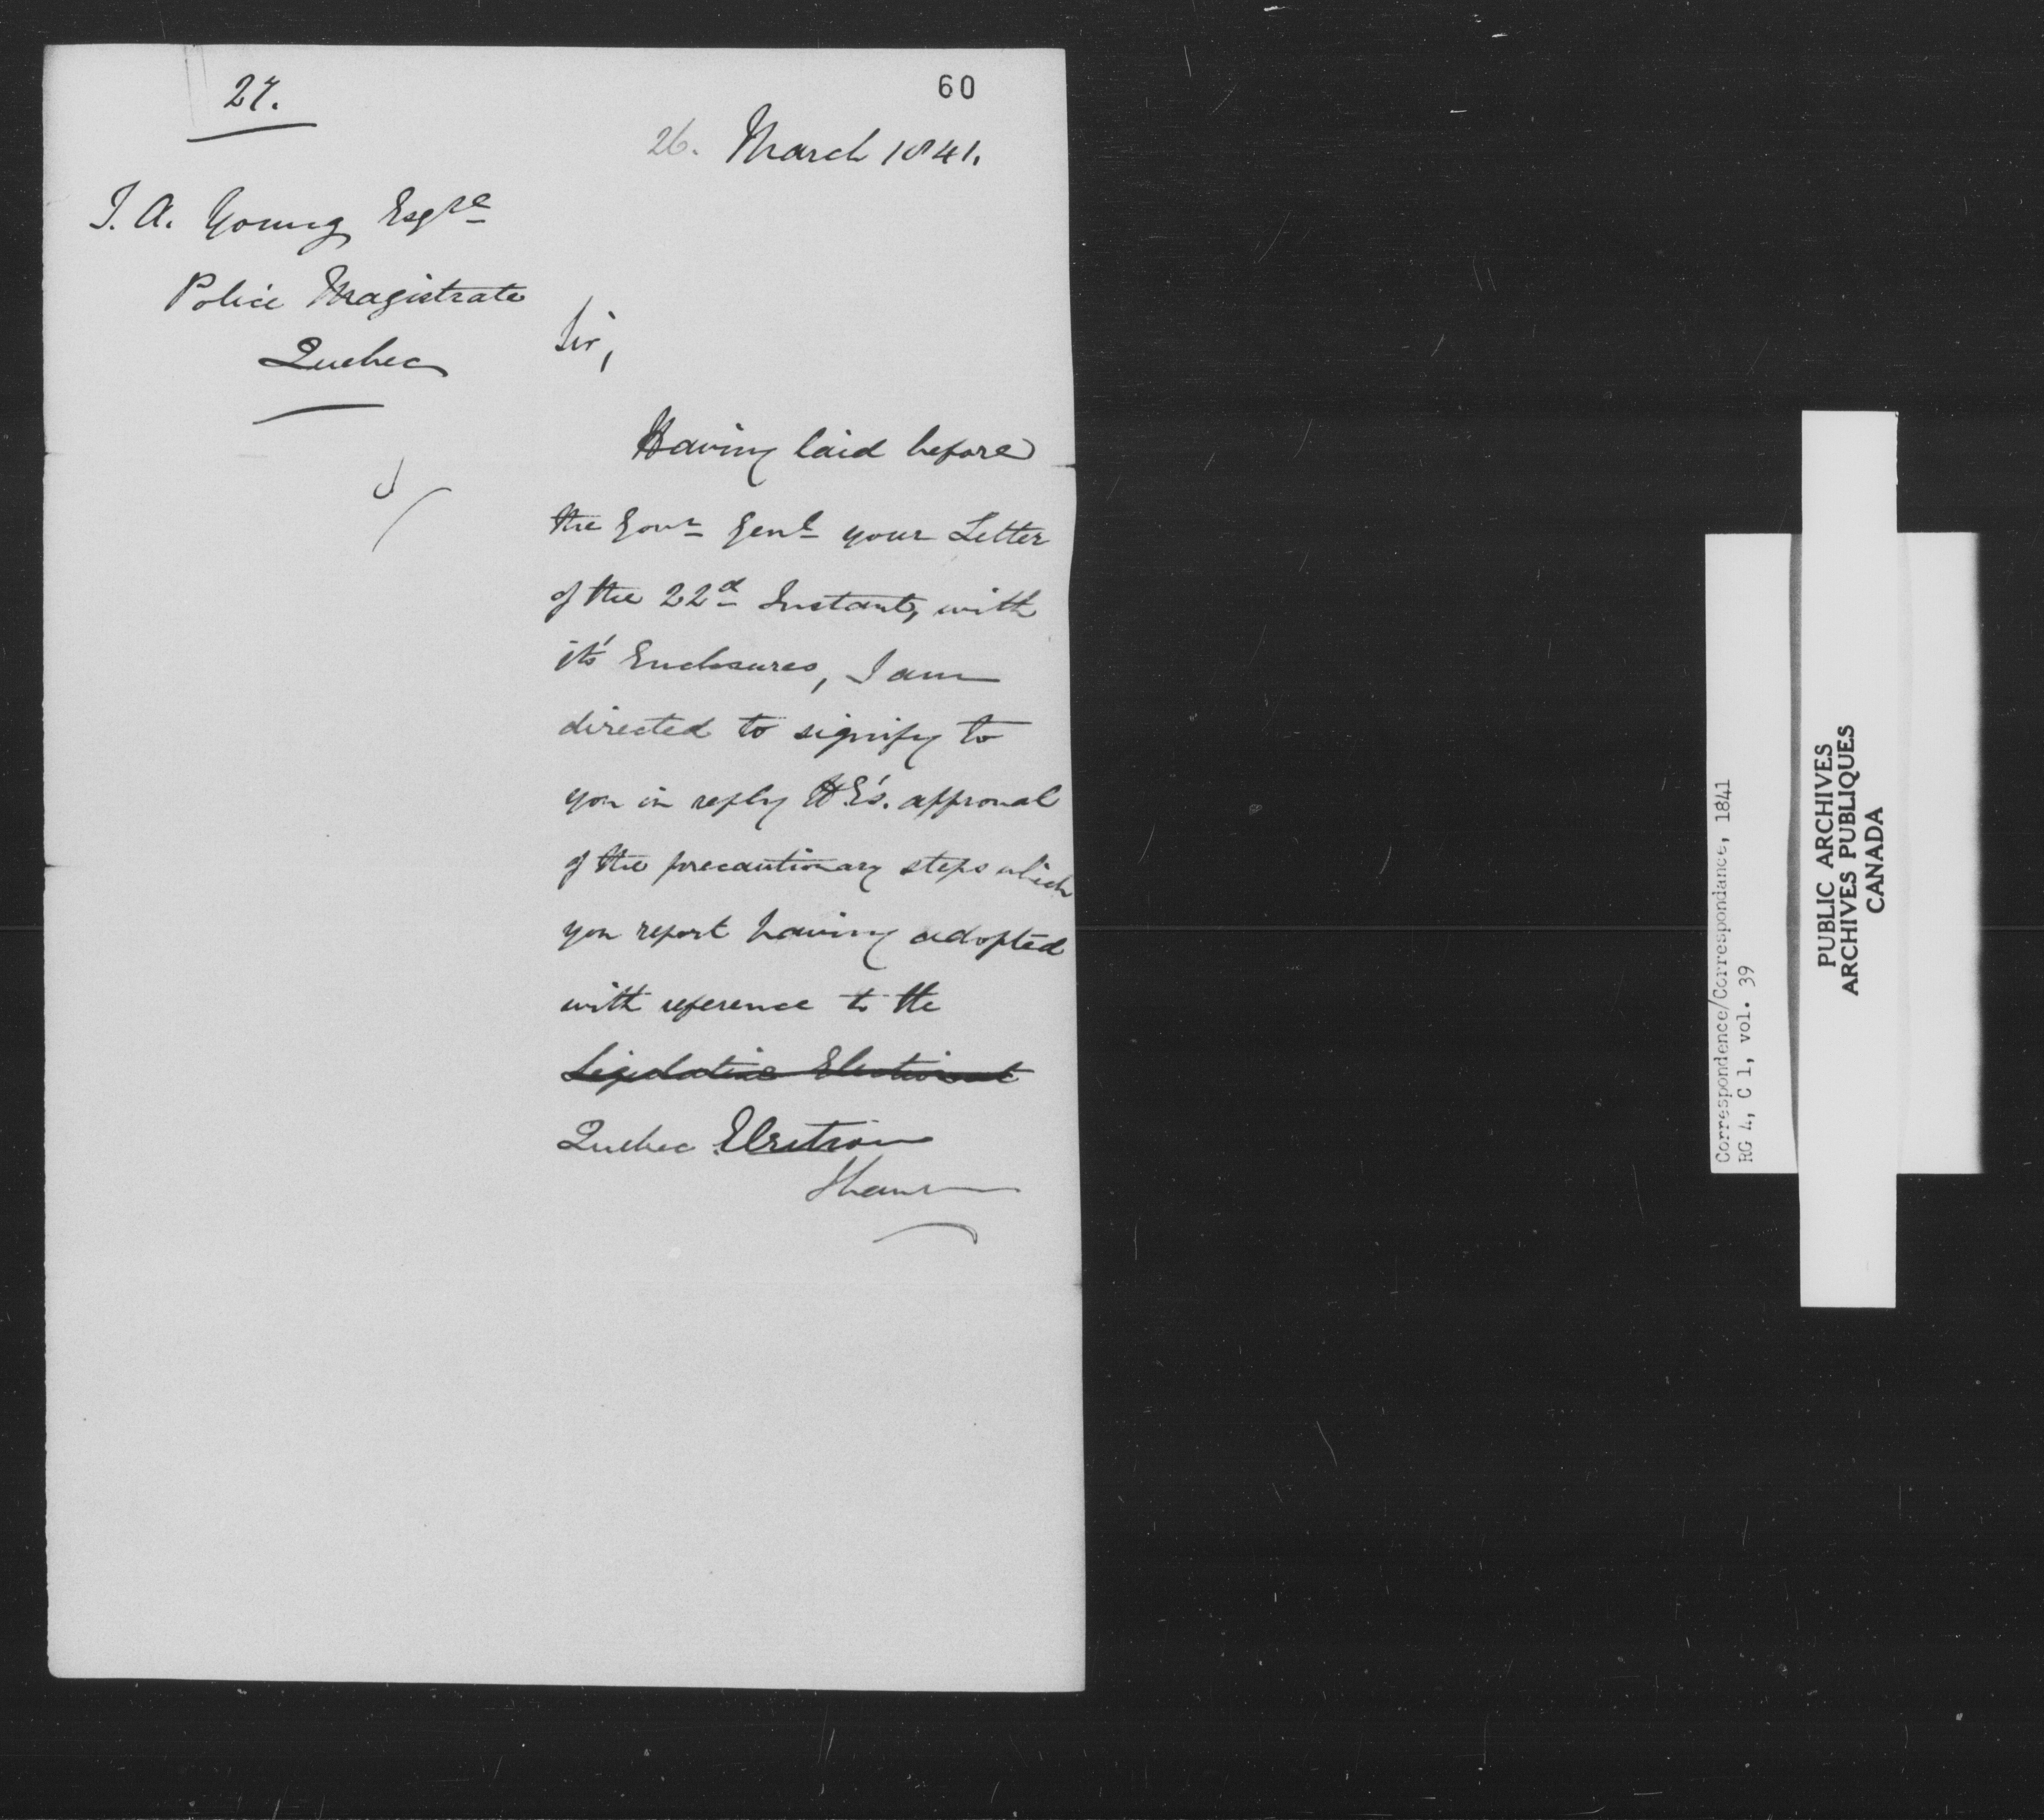 27.
60
26. March 1841.
T. A. Young Esqre
Police Magistrate
Quebec
Sir,
Having laid before
the Govr Genl your Letter
of the 22d Instant, with
it's Enclosures, I am
directed to signify to
you in reply H.E's. approval
of the precautionary steps which
you report having adopted
with reference to the
Legislative Election at
Quebec Election
I have
Correspondence/Correspondance, 1841
RG 4, C 1, vol. 39
PUBLIC ARCHIVES
ARCHIVES PUBLIQUES
CANADA